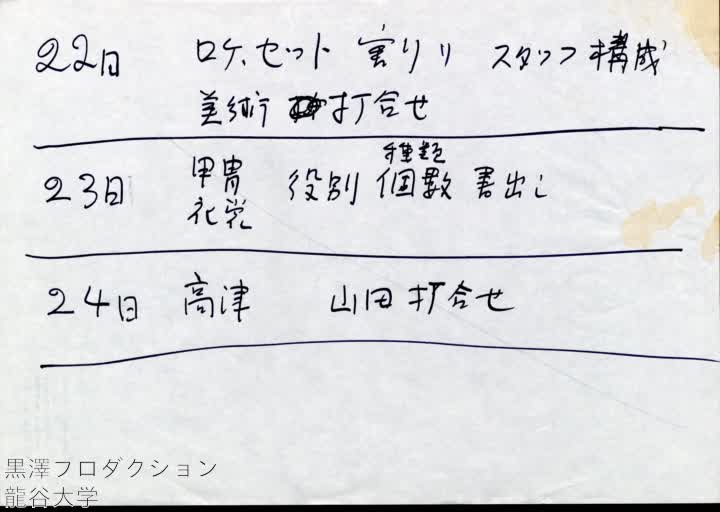 22日 ロケ、セット 割り スタッフ構成
美術 打合せ
23日 甲冑 役別 種類 個数 書出し
衣裳
24日 高津 山田打合せ
黒澤プロダクション
龍谷大学